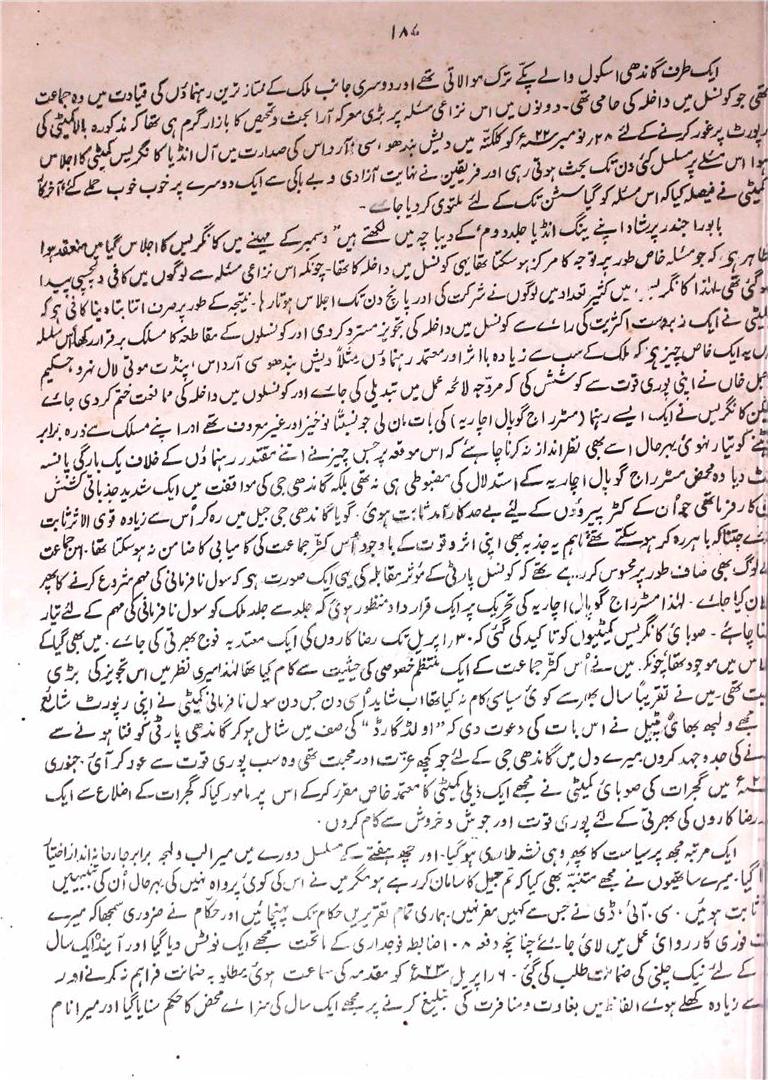 ۱۸۷
ایک طرف گاندھی اسکول والے پکے ترک موالاتی تھے اور دوسری جانب ملک کے ممتاز ترین رہنماؤں کی قیادت میں وہ جماعت
تھی جو کونسل میں داخلہ کی حامی تھی۔ دونوں میں اس نزاعی مسئلہ پر بڑی معرکہ آرا بحث و تمحیص کا بازار گرم ہی تھا کہ مذکورہ بالا کمیٹی کی
رپورٹ پر غور کرنے کے لئے ۲۸ نومبر ۲۲ء کو کلکتہ میں دیش بندھو سی آر داس کی صدارت میں آل انڈیا کانگریس کمیٹی کا اجلاس
ہوا اس مسئلے پر مسلسل کئی دن تک بحث ہوتی رہی اور فریقین نے نہایت آزادی و بے باکی سے ایک دوسرے پر خوب خوب حملے کئے آخر کار
کمیٹی نے فیصلہ کیا کہ اس مسئلہ کو گیا سشن تک کے لئے ملتوی کر دیا جائے۔
بابو راجندر پرشاد اپنے ینگ انڈیا جلد دوم کے دیباچہ میں لکھتے ہیں "دسمبر کے مہینے میں کانگریس کا اجلاس گیا میں منعقد ہوا
ظاہر ہے کہ جو مسئلہ خاص طور پر توجہ کا مرکز ہو سکتا تھا یہی کونسل میں داخلہ کا تھا۔ چونکہ اس نزاعی مسئلہ سے لوگوں میں کافی دلچسپی پیدا
ہو گئی تھی۔ لہٰذا کانگریس میں کثیر تعداد میں لوگوں نے شرکت کی اور پانچ دن تک اجلاس ہوتا رہا۔ نتیجہ کے طور پر صرف اتنا بتا دینا کافی ہو کہ
کمیٹی نے ایک زبردست اکثریت کی رائے سے کونسل میں داخلہ کی تجویز مسترد کر دی اور کونسلوں کے مقاطعہ کا مسلک برقرار رکھا اس سلسلہ
میں یہ ایک خاص چیز ہے کہ ملک کے سب سے زیادہ با اثر اور معتمد رہنماؤں مثلاً دیش بندھو سی آر داس، پنڈت موتی لال نہرو، حکیم
اجمل خاں نے اپنی پوری قوت سے کوشش کی کہ مروجہ لائحہ عمل میں تبدیلی کی جائے اور کونسلوں میں داخلہ کی ممانعت ختم کر دی جائے
لیکن کانگریس نے ایک ایسے رہنما (مسٹر راج گوپال اچاریہ) کی بات مان لی جو نسبتاً نوخیز اور غیر معروف تھے اور اپنے مسلک سے ذرہ برابر
ہٹنے کو تیار نہ ہوئے بہرحال اسے بھی نظر انداز نہ کرنا چاہئے کہ اس موقعہ پر جس چیز نے اتنے مقتدر رہنماؤں کے خلاف یک بارگی پانسہ
پلٹ دیا وہ محض مسٹر راج گوپال اچاریہ کے استدلال کی مضبوطی ہی نہ تھی بلکہ گاندھی جی کی موافقت میں ایک شدید جذباتی کشش
بھی کارفرما تھی جو اُن کے کٹر پیروؤں کے لئے بے حد کار آمد ثابت ہوئی۔ گویا گاندھی جی جیل میں رہ کر اُس سے زیادہ قوی الاثر ثابت
ہوئے جتنا کہ باہر رہ کر ہو سکتے تھے تاہم یہ جذبہ بھی اپنی اثر و قوت کے باوجود اُس کٹر جماعت کی کامیابی کا ضامن نہ ہو سکتا تھا۔ اس جماعت
کے لوگ بھی صاف طور پر محسوس کر رہے تھے کہ کونسل پارٹی کے مؤثر مقابلہ کی یہی ایک صورت ہے کہ سول نافرمانی کی مہم شروع کرنے کا پھر
اعلان کیا جائے۔ لہٰذا مسٹر راج گوپال اچاریہ کی تحریک پر ایک قرارداد منظور ہوئی کہ جلد سے جلد ملک کو سول نافرمانی کی مہم کے لئے تیار
ہونا چاہئے۔ صوبائی کانگریس کمیٹیوں کو تاکید کی گئی کہ ۳۰ اپریل تک رضا کاروں کی ایک معتدبہ فوج بھرتی کی جائے۔ میں بھی گیا کے
اجلاس میں موجود تھا چونکہ میں نے اُس کٹر جماعت کے ایک منتظم خصوصی کی حیثیت سے کام کیا تھا لہٰذا میری نظر میں اس تجویز کی بڑی
اہمیت تھی۔ میں نے تقریباً سال بھر سے کوئی سیاسی کام نہ کیا تھا اب شاید اُسی دن جس دن سول نافرمانی کمیٹی نے اپنی رپورٹ شائع
مجھے ولبھ بھائی پٹیل نے اس بات کی دعوت دی کہ "اولڈ گارڈ" کی صف میں شامل ہو کر گاندھی پارٹی کو فنا ہونے سے
بچانے کی جدوجہد کروں میرے دل میں گاندھی جی کے لئے جو کچھ عزت اور محبت تھی وہ سب پوری قوت سے عود کر آئی۔ جنوری
۲۳ء میں گجرات کی صوبائی کمیٹی نے مجھے ایک ذیلی کمیٹی کا معتمد خاص مقرر کر کے اس پر مامور کیا کہ گجرات کے اضلاع سے ایک
رضا کاروں کی بھرتی کے لئے پوری قوت اور جوش و خروش سے کام کروں۔
ایک مرتبہ مجھ پر سیاست کا پھر وہی نشہ طاری ہو گیا۔ اور چھ ہفتے کے مسلسل دورے میں میرا لب و لہجہ برابر جارحانہ انداز اختیار
گیا۔ میرے ساتھیوں نے مجھے متنبہ بھی کیا کہ تم جیل کا سامان کر رہے ہو مگر میں نے اس کی کوئی پرواہ نہیں کی بہرحال اُن کی تنبیہیں
ثابت ہوئیں۔ سی، آئی، ڈی نے جس سے کہیں مفر نہیں، ہماری تمام تقریریں حکام تک پہنچائیں اور حکام نے ضروری سمجھا کہ میرے
فوری کارروائی عمل میں لائی جائے چنانچہ دفعہ ۱۰۸ ضابطہ فوجداری کے ماتحت مجھے ایک نوٹس دیا گیا اور آیندہ ایک سال
کے لئے نیک چلنی کی ضمانت طلب کی گئی۔ ۶ اپریل ۲۳ء کو مقدمہ کی سماعت ہوئی مطلوبہ ضمانت فراہم نہ کرنے اور
سے زیادہ کھلے ہوئے الفاظ میں بغاوت و منافرت کی تبلیغ کرنے پر مجھے ایک سال کی سزائے محض کا حکم سنایا گیا اور میرا نام